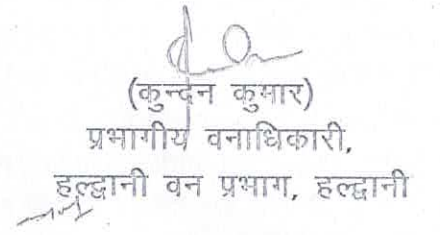 (कुन्दन कुमार)
प्रभागीय वनाधिकारी,
हल्द्वानी वन प्रभाग, हल्द्वानी